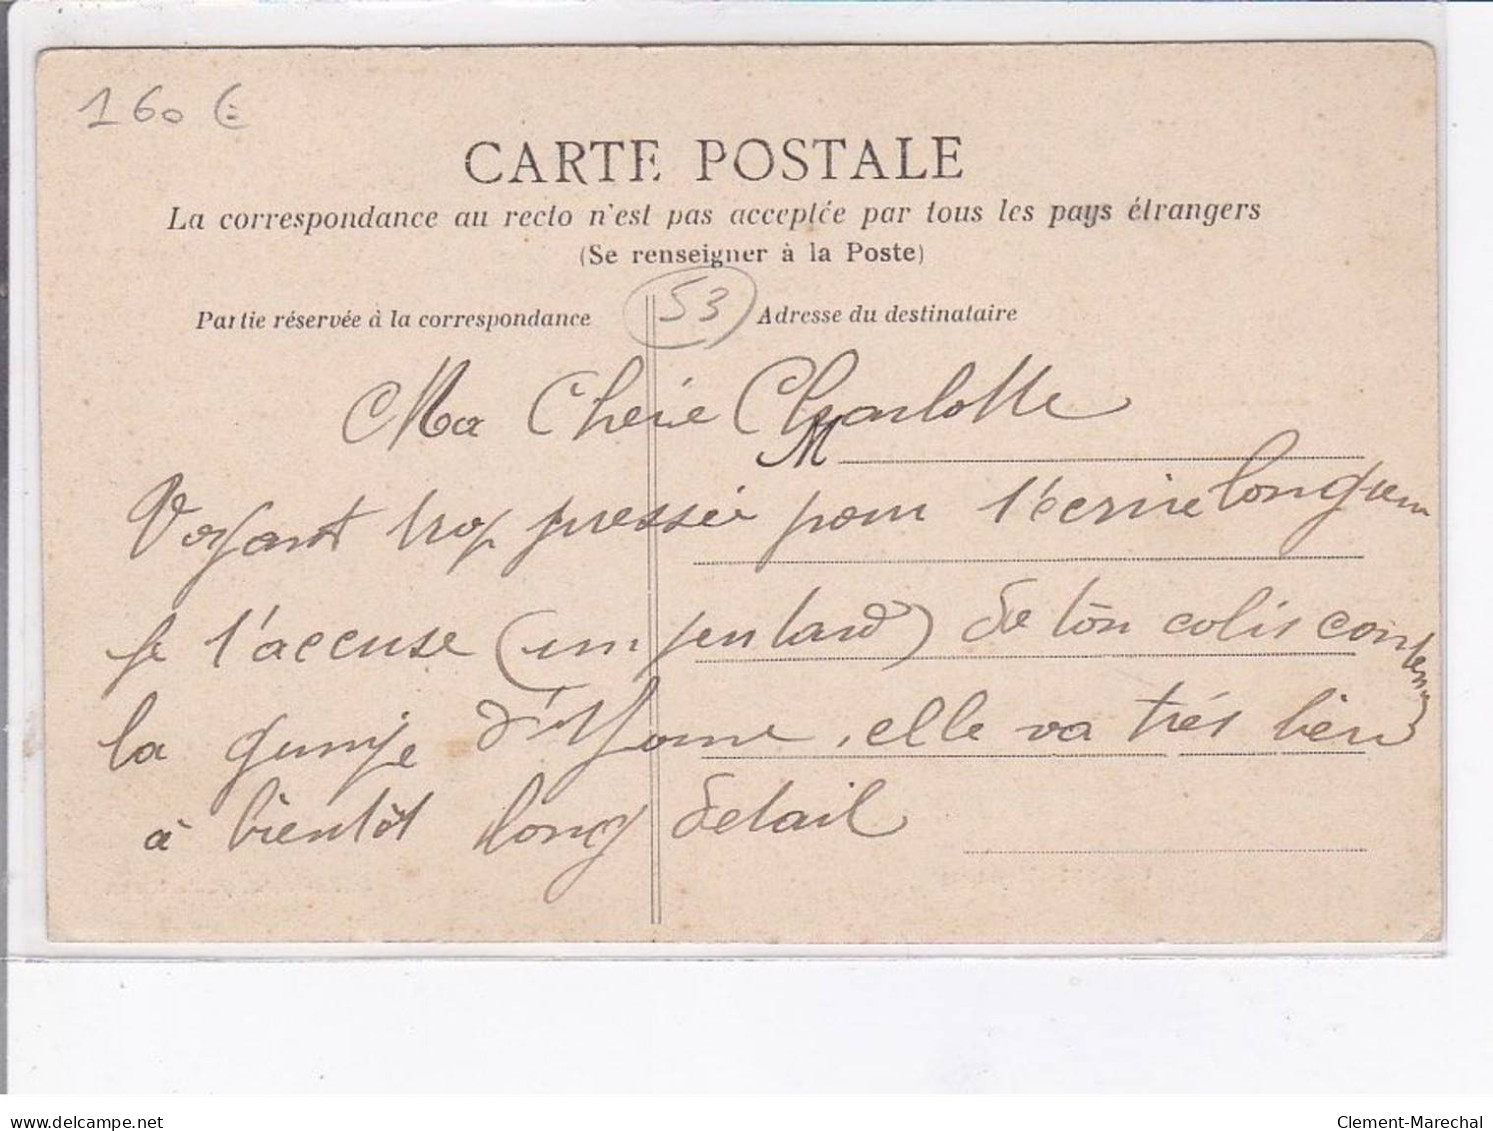 160 €
CARTE POSTALE
La correspondance au recto n'est pas acceptée par tous les pays étrangers
(Se renseigner à la Poste)
53
Partie réservée à la correspondance
Adresse du destinataire
Ma Cherie Charlotte
M
Voyant trop pressée pour t'ecrire longuem
je t'accuse (un peu tard) de ton colis contenu
la d'Yonne, elle va très bien
à bientôt long detail
delcampe.net
Clement-Marechal